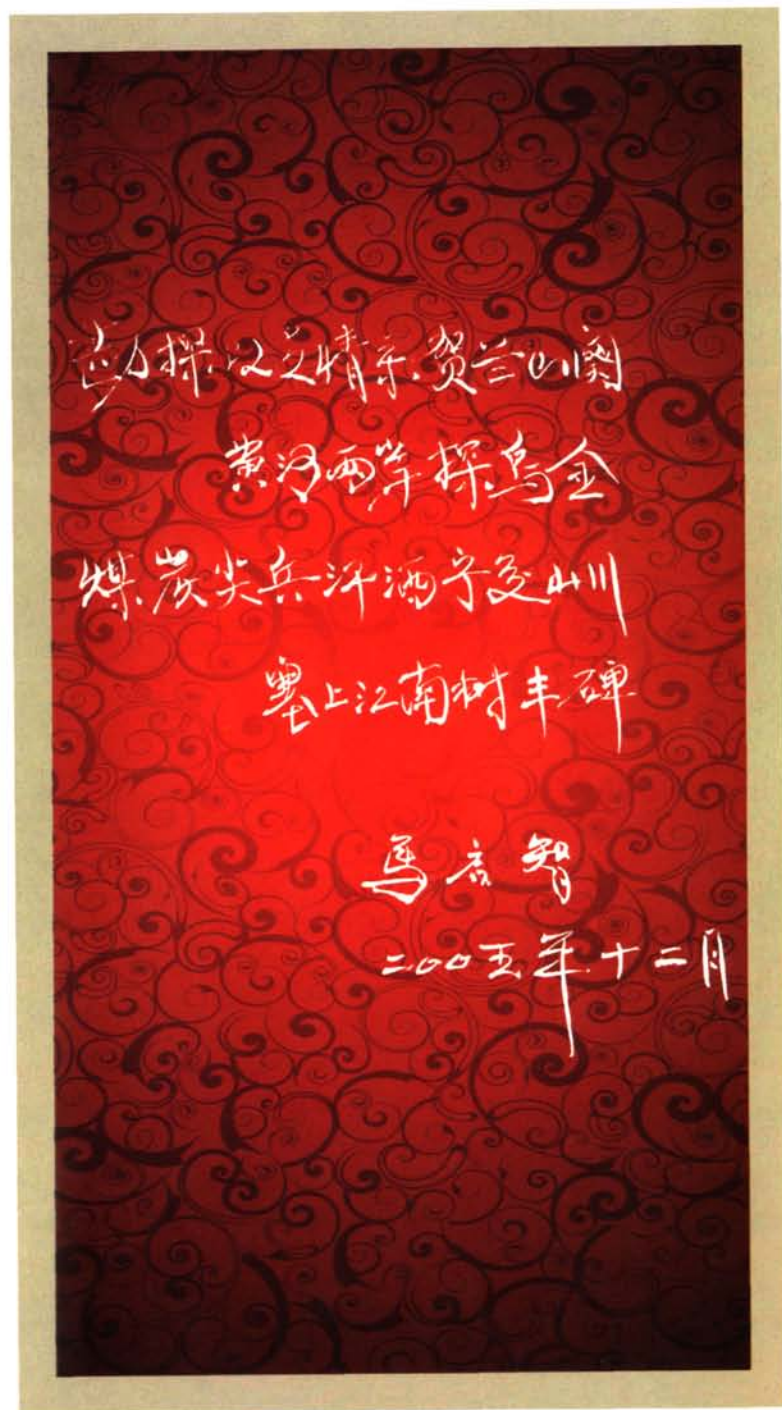 勘探儿女情系贺兰山阙
黄河两岸探乌金
煤炭尖兵汗洒宁夏山川
塞上江南树丰碑
马启智
二〇〇五年十二月